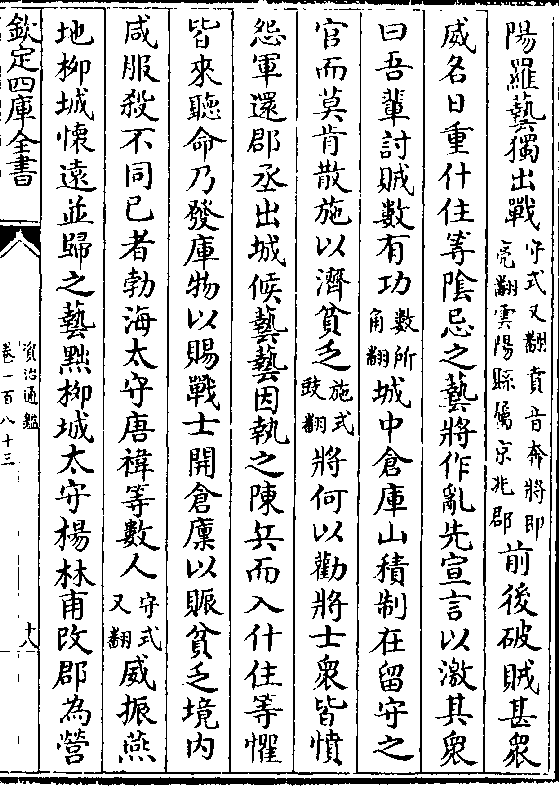 陽羅藝獨出戰守式又翻賁音奔將即亮翻雲陽縣屬京兆郡前後破賊甚衆
威名日重什住等陰忌之藝將作亂先宣言以激其衆
曰吾輩討賊數有功數所角翻城中倉庫山積制在留守之
官而莫肯散施以濟貧乏施式豉翻將何以勸將士衆皆憤
怨軍還郡丞出城候藝藝因執之陳兵而入什住等懼
皆來聽命乃發庫物以賜戰士開倉廩以賑貧乏境内
咸服殺不同已者勃海太守唐禕等數人守式又翻威振燕
地柳城懷遠並歸之藝黜柳城太守楊林甫改郡為營
欽定四庫全書
資治通鑑
卷一百八十三
十八